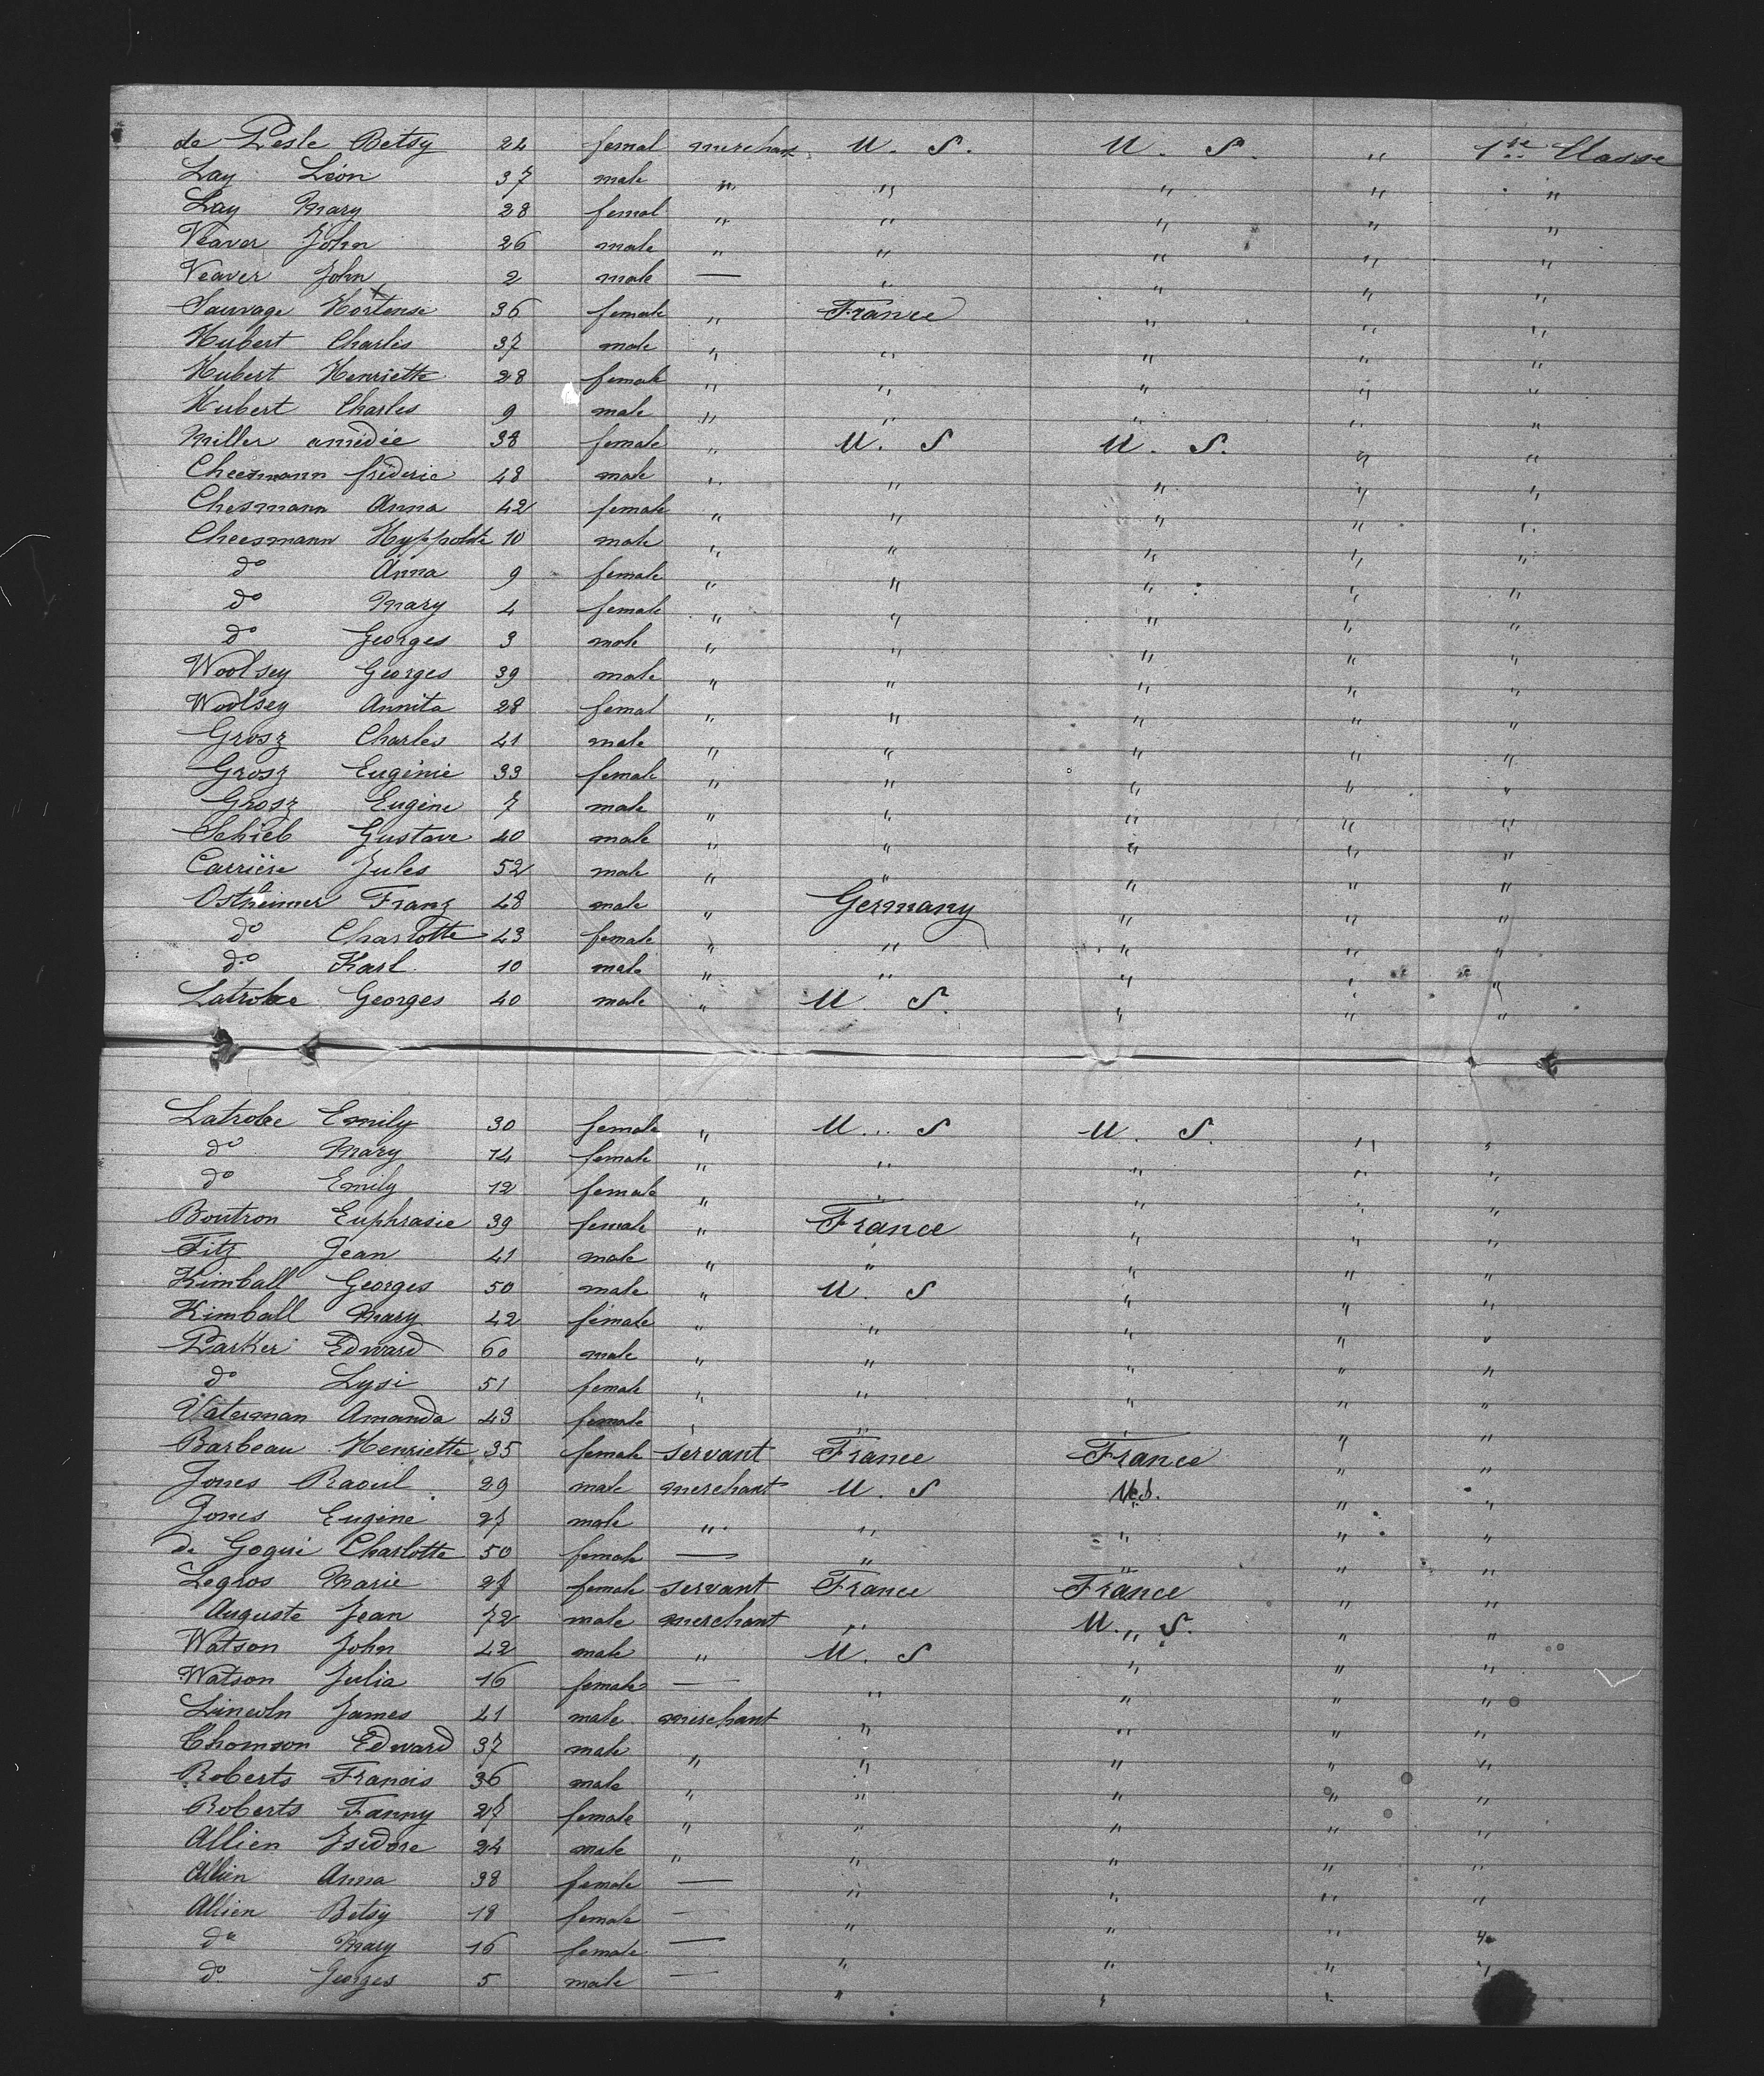 de Pesle Betsy 24 femal merchant U. S. U. S. " 1re Classe
Lay Léon 37 male " " " " "
Lay Mary 28 femal " " " " "
Veaver John 26 male " " " " "
Veaver John 2 male — " " " "
Sauvage Hortense 36 female " France " " "
Hubert Charles 37 male " " " " "
Hubert Henriette 28 female " " " " "
Hubert Charles 9 male " " " " "
Miller amédée 38 female " U. S U. S. " "
Cheesmann fréderic 48 male " " " " "
Chesmann Anna 42 female " " " " "
Cheesmann Hyppolite 10 male " " " " "
do Anna 9 female " " " " "
do Mary 4 female " " " " "
do Georges 3 male " " " " "
Woolsey Georges 39 male " " " " "
Woolsey Annita 28 femal " " " " "
Grosz Charles 41 male " " " " "
Grosz Eugénie 33 female " " " " "
Grosz Eugène 7 male " " " " "
Schieb Gustave 40 male " " " " "
Carrière Jules 52 male " " " " "
Ostheimer Franz 48 male " Germany " " "
do Charlotte 43 female " " " " "
do Karl 10 male " " " " "
Latrobe Georges 40 male " U. S. " " "
Latrobe Emily 30 female " U. S U. S. " "
do Mary 14 female " " " " "
do Emily 12 female " " " " "
Boutron Euphrasie 39 female " France " " "
Fitz Jean 41 male " " " " "
Kimball Georges 50 male " U. S " " "
Kimball Mary 42 female " " " " "
Parker Edward 60 male " " " " "
do Lysi 51 female " " " " "
Vaterman Amanda 43 female " " " " "
Barbeau Henriette 35 female servant France France " "
Jones Raoul 29 male merchant U. S U.S. " "
Jones Eugène 27 male " " " " "
de Gogui Charlotte 50 female — " " " "
Legros Marie 27 female servant France France " "
Auguste Jean 72 male merchant " U. S. " "
Watson John 42 male " U. S " " "
Watson Julia 16 female — " " " "
Lincoln James 41 male merchant " " " "
Thomson Edward 37 male " " " " "
Roberts Francis 36 male " " " " "
Roberts Fanny 27 female " " " " "
Allien Isidore 24 male " " " " "
Allien Anna 38 female — " " " "
Allien Betsy 18 female — " " " "
do Mary 16 female — " " " "
do Georges 5 male — " " "